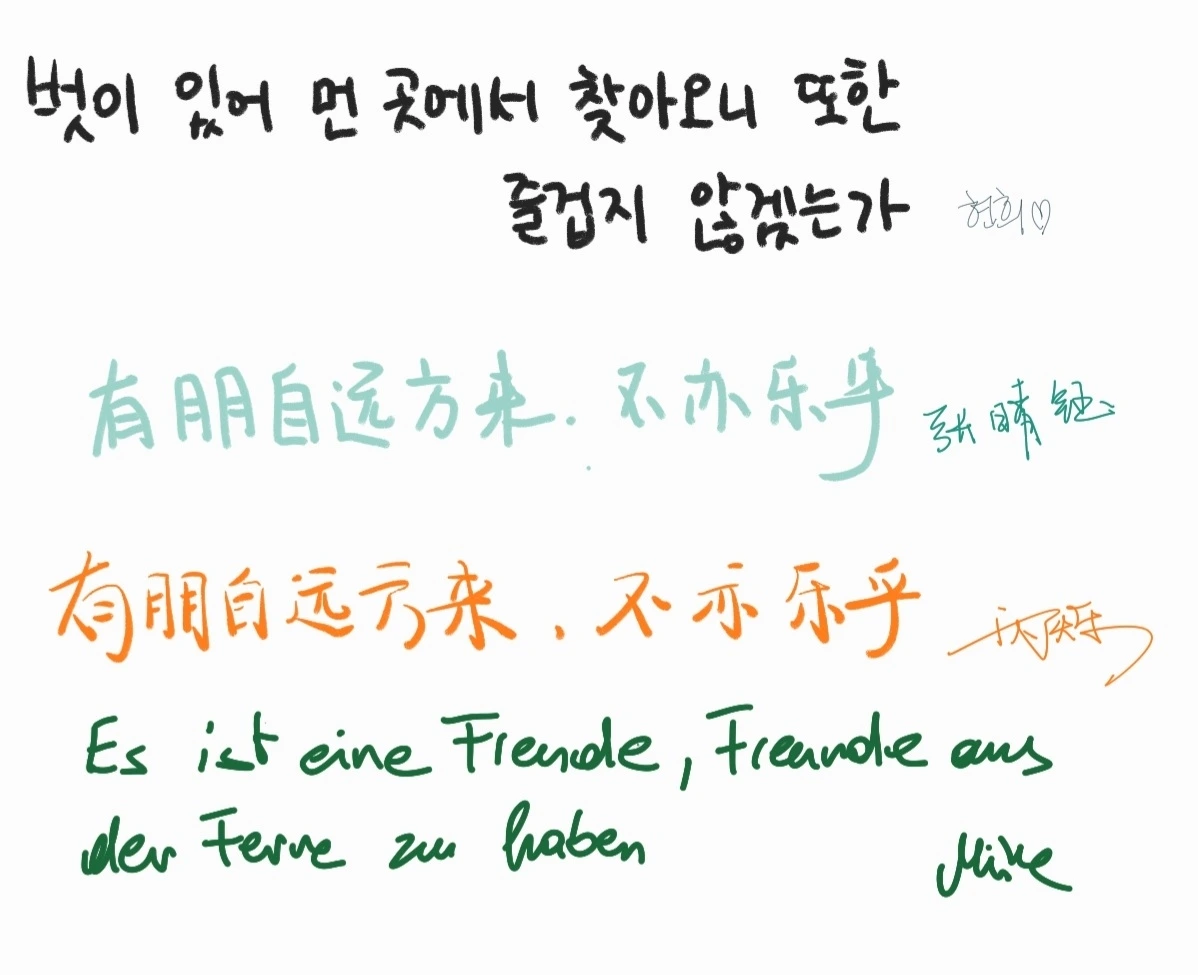 벗이 있어 먼 곳에서 찾아오니 또한
즐겁지 않겠는가 현희♡
有朋自远方来.不亦乐乎 张晴钰
有朋自远方来.不亦乐乎
Es ist eine Freude, Freunde aus
der Ferne zu haben Mike